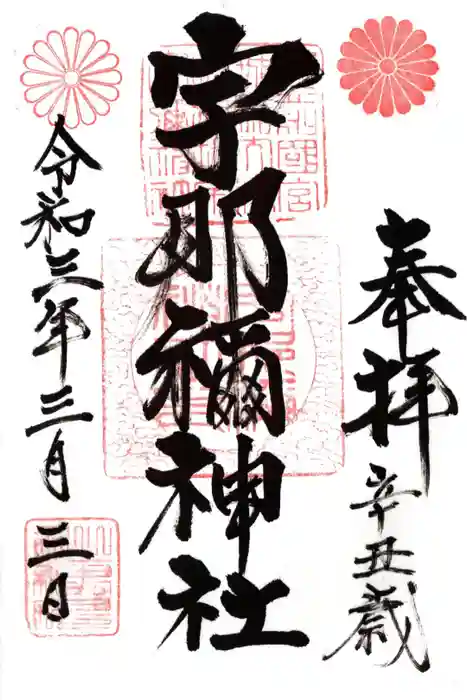 奉拝 辛丑歳
宇那禰神社
令和三年三月三日